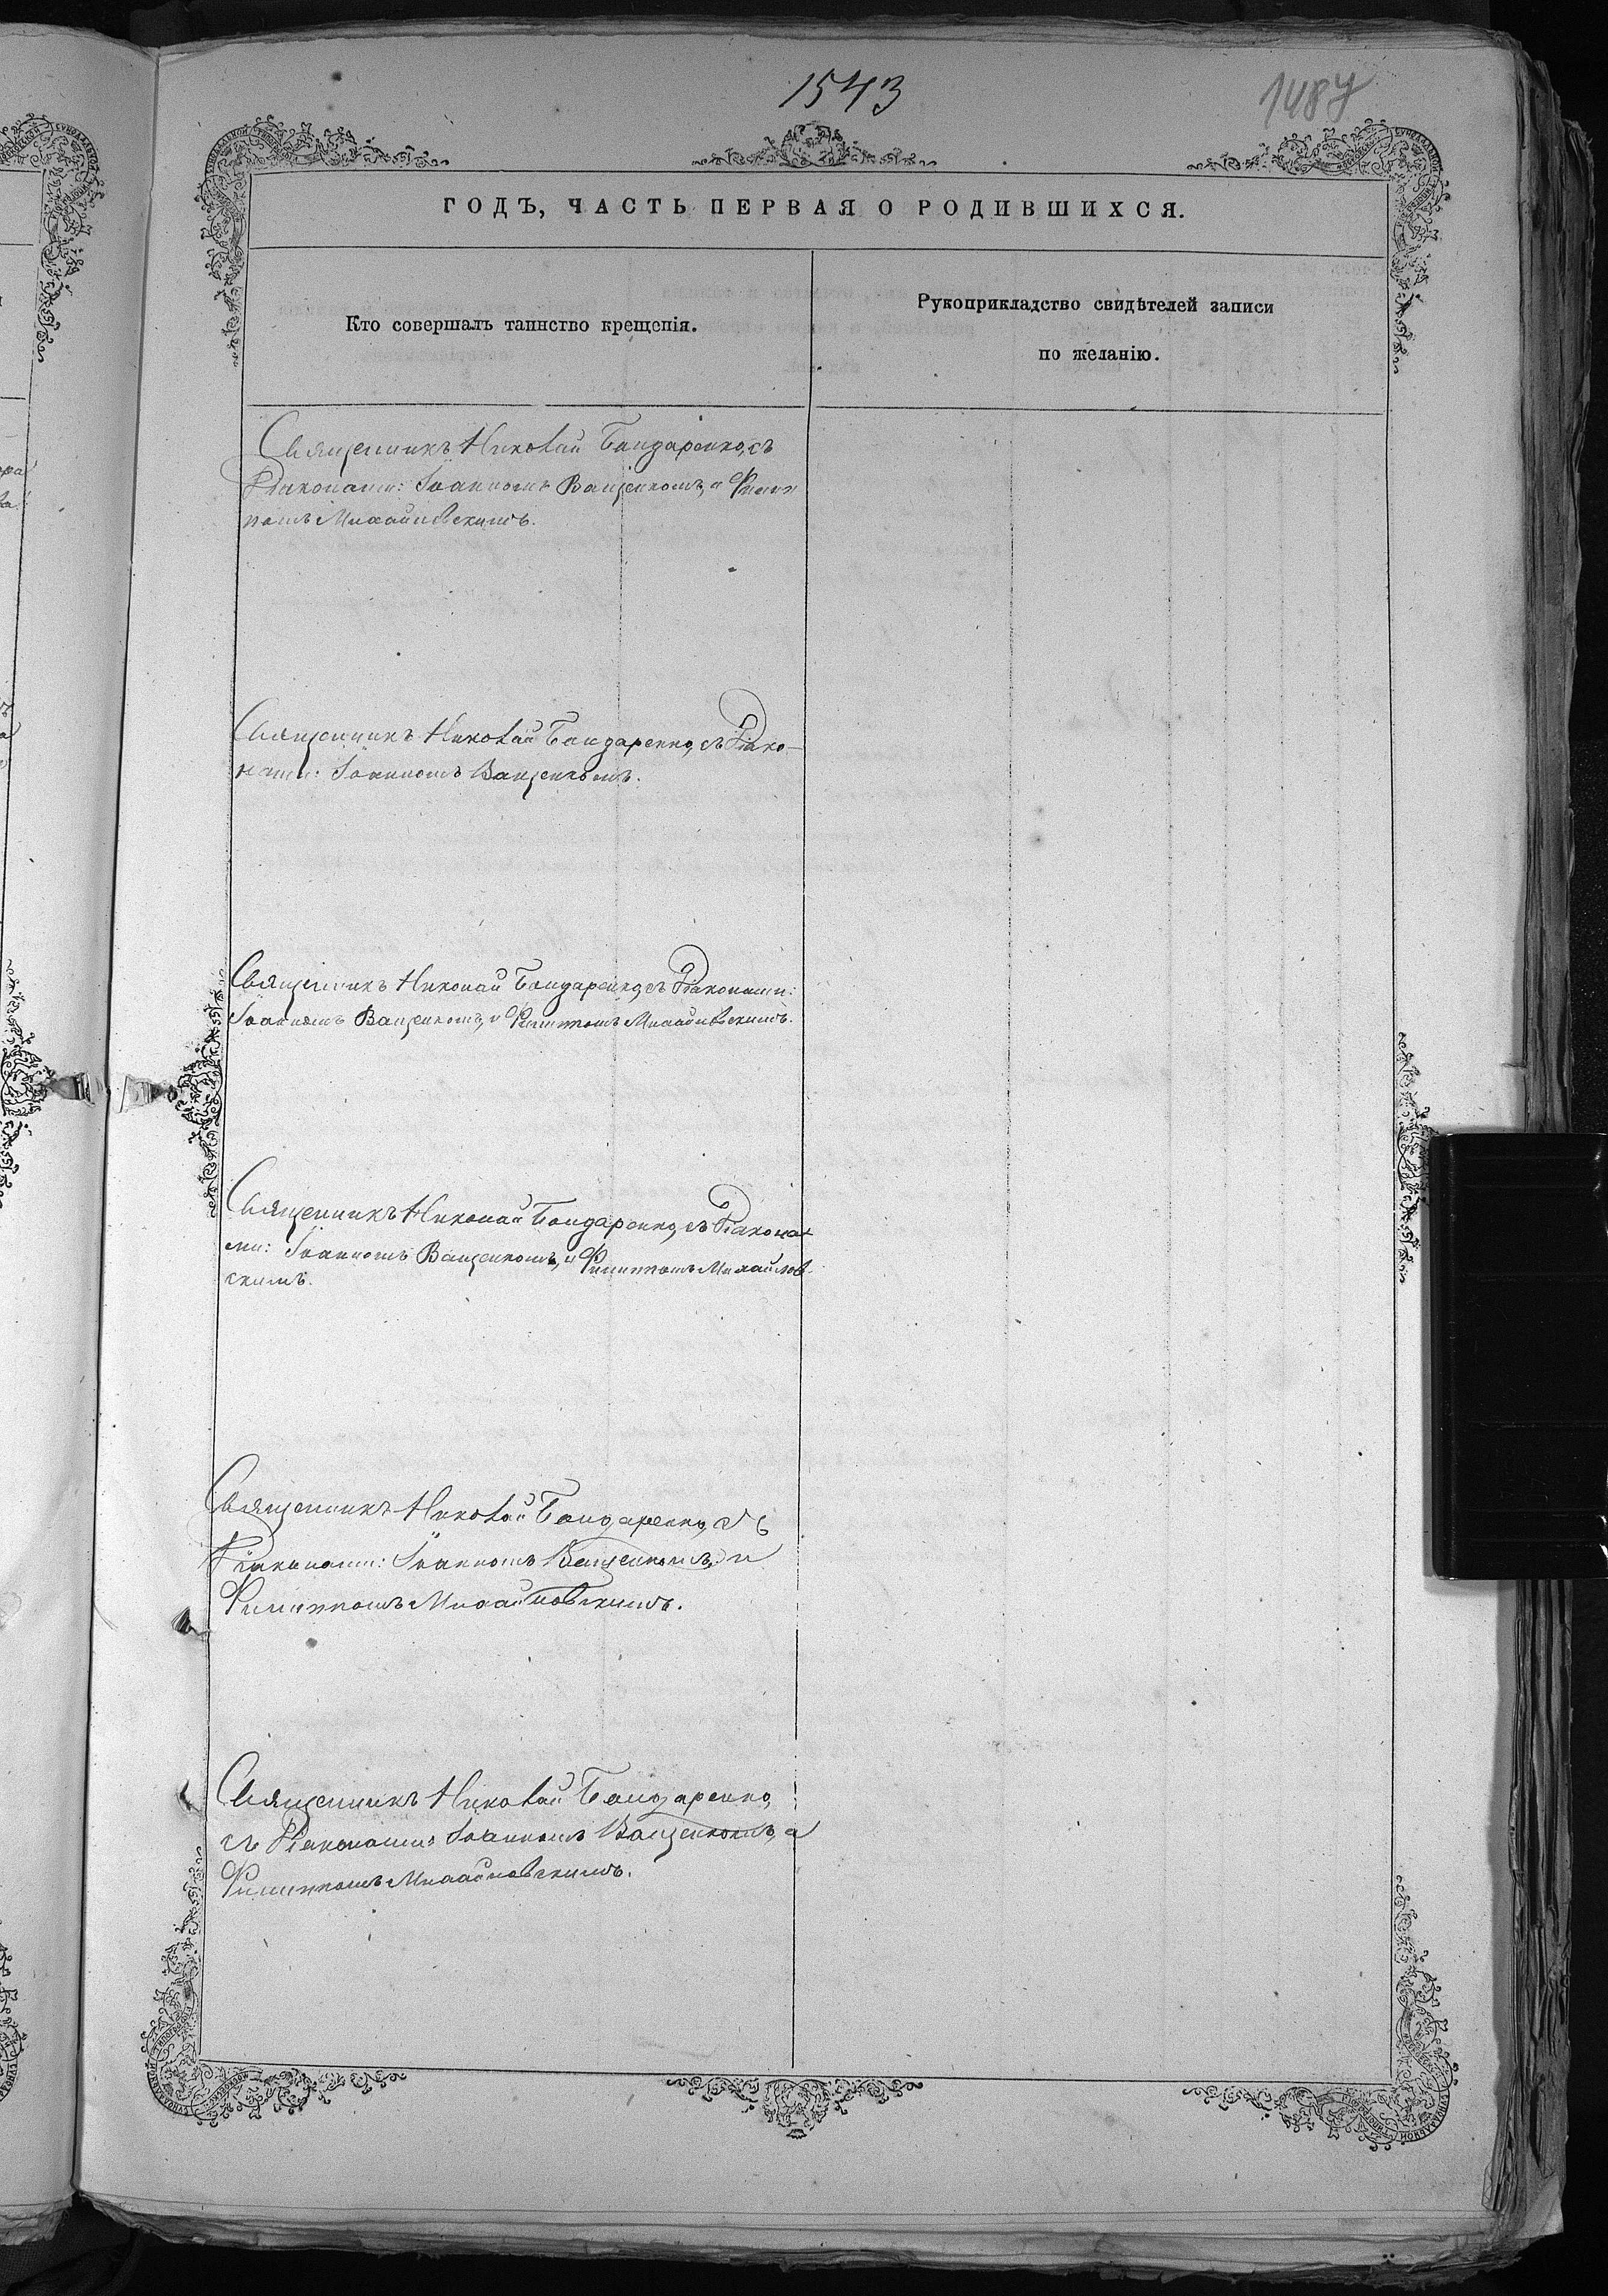 1543
1487
ГОДЪ, ЧАСТЬ ПЕРВАЯ О РОДИВШИХСЯ.
Кто совершалъ таинство крещенія.
Рукоприкладство свидѣтелей записи
по желанію.
Священникъ Николай Бондаренко, съ
Діаконами: Іоанномъ Ващенкомъ, и Филип
помъ Михайловскимъ.
Священникъ Николай Бондаренко, съ Діако-
нами: Іоанномъ Ващенкомъ.
Священникъ Николай Бондаренко, съ Діаконами:
Іоанномъ Ващенкомъ, и Филиппомъ Михайловскимъ.
Священникъ Николай Бондаренко, съ Діакона-
ми: Іоанномъ Ващенкомъ, и Филиппомъ Михайлов-
скимъ.
Священникъ Николай Бондаренко, съ
Діаконами: Іоанномъ Ващенкомъ, и
Филиппомъ Михайловскимъ.
Священникъ Николай Бондаренко,
съ Діаконами: Іоанномъ Ващенкомъ, и
Филиппомъ Михайловскимъ.